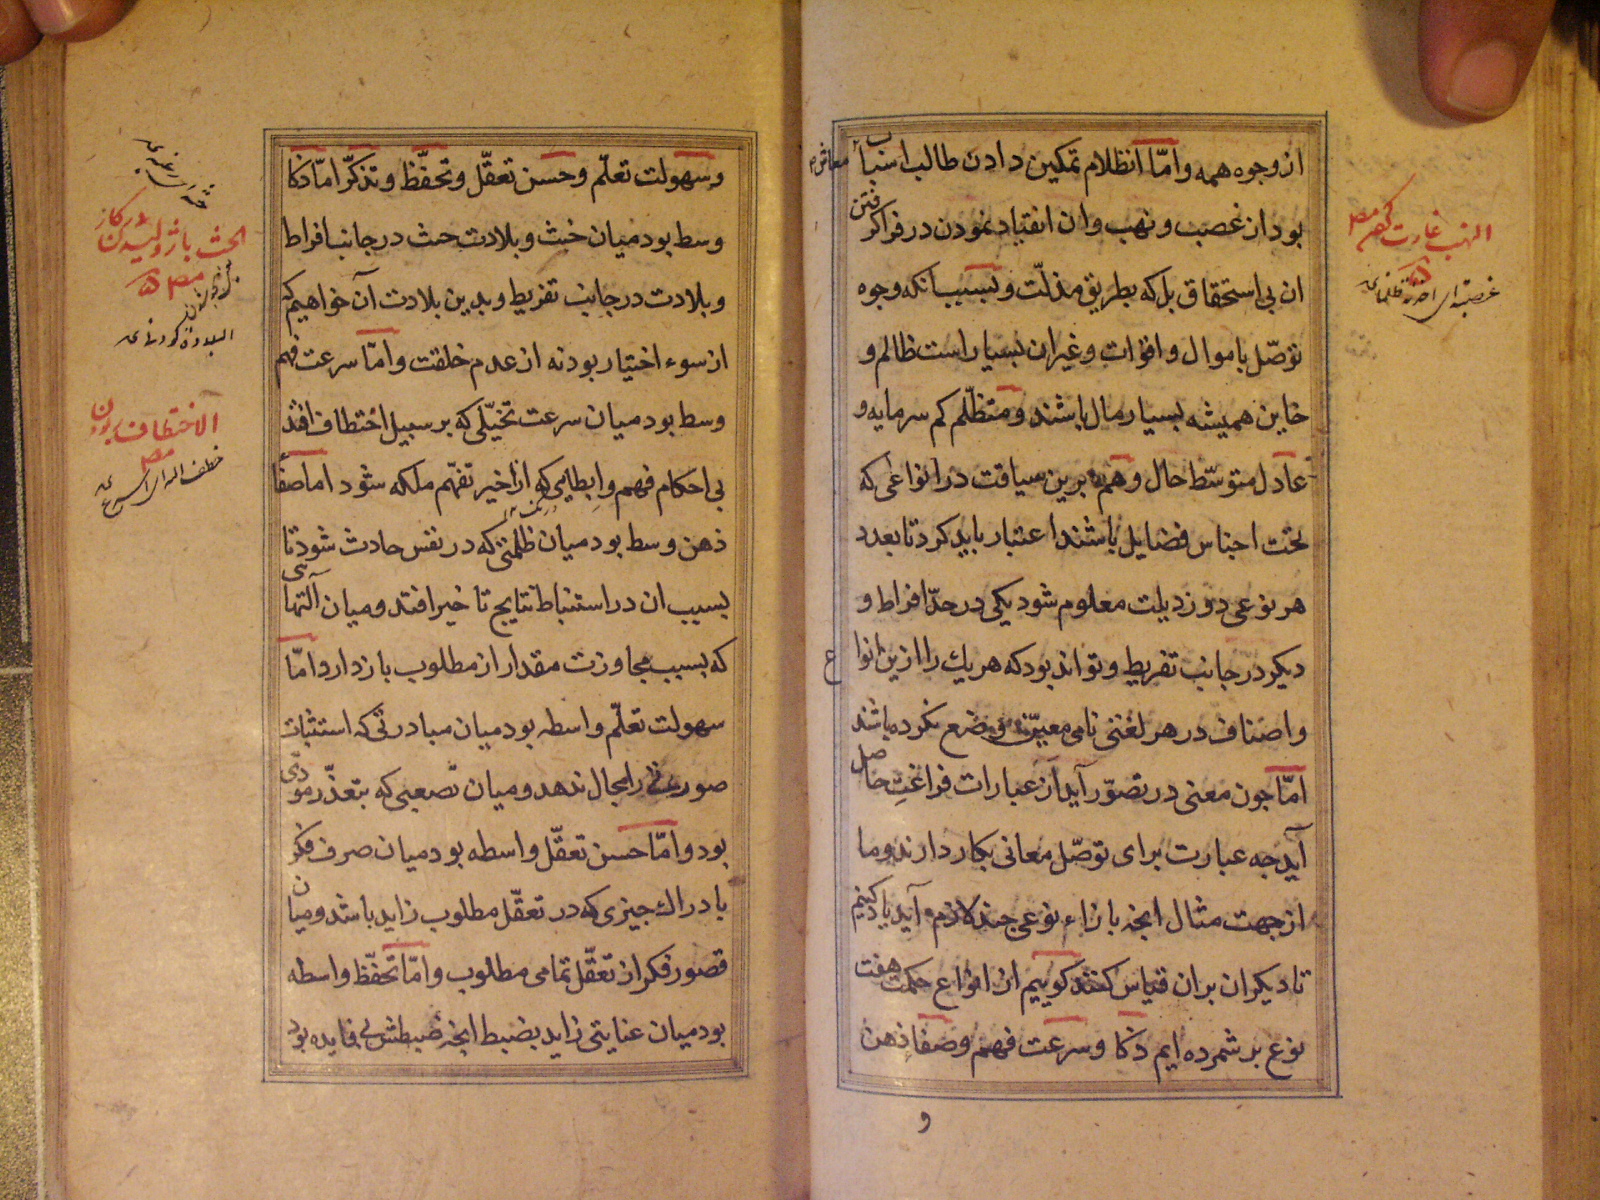 از وجوه همه و امّا انظلام تمکین دادن طالب اسباب معاش
بود از غصب و نهب و ان انقیاد نمودن در فراکرفتن
ان بی استحقاق بل که بطریق مذلّت و بسبب انکه وجوه
توصّل باموال و اقوات و غیر ان بسیار است ظالم و
خاین همیشه بسیار مال باشند و متظلّم کم سرمایه و
عادل متوسّط حال و هم برین سیاقت در انواعی که
تحت اجناس فضایل باشند اعتبار باید کرد تا بعدد
هر نوعی دو رذیلت معلوم شود یکی در حدّ افراط و
دیکر در جانب تفریط و تواند بود که هریك را ازین انواع
و اصناف در هر لغتی نامی معیّن وضع نکرده باشند
امّا چون معنی در تصوّر آید از عبارات فراغت حاصل
آید چه عبارت برای توصّل معانی بکار دارند و ما
از جهت مثال انچه بازاء نوعی چند لازم آید یاد کنیم
تا دیکران بران قیاس کنند کوییم از انواع حکمت هفت
نوع بر شمرده ایم ذکا و سرعت فهم و صفا ذهن
و
النهب غارت کردن
و سهولت تعلّم و حسن تعقّل و تحفّظ و تذکّر امّا ذکا
وسط بود میان خبث و بلادت خبث در جانب افراط
و بلادت در جانب تفریط و بدین بلادت آن خواهیم که
از سوء اختیار بود نه از عدم خلقت و امّا سرعت فهم
وسط بود میان سرعت تخیّلی که بر سبیل اختطاف افتد
بی احکام فهم و ابطایی که از تاخیر تفهّم ملکه شود اما صفا
ذهن وسط بود میان ظلمتی که در نفس حادث شود تا
بسبب ان در استنباط نتایج تاخیر افتد و میان التهابی
که بسبب مجاوزت مقدار از مطلوب باز دارد و امّا
سهولت تعلّم واسطه بود میان مبادرتی که استثبات
صورت را مجال ندهد و میان تصعبی که بتعذّر مودی
بود و امّا حسن تعقّل واسطه بود میان صرف فکر
بادراك چیزی که در تعقّل مطلوب زاید باشد و میان
قصور فکر از تعقّل تمامی مطلوب و امّا تحفّظ واسطه
بود میان عنایتی زاید بضبط انچه ضبطش بی فایده بود
الاختطاف ربودن